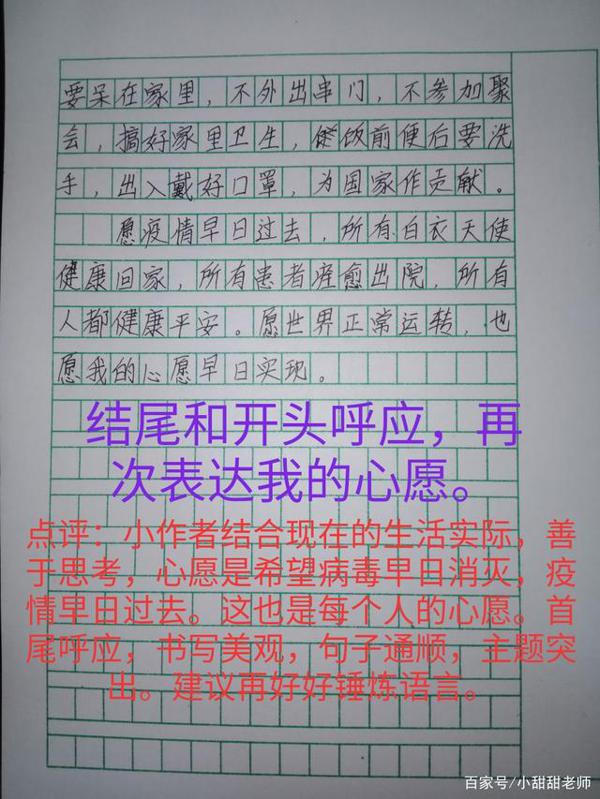 要呆在家里，不外出串门，不参加聚
会，搞好家里卫生，饭前便后要洗
手，出入戴好口罩，为国家作贡献。
愿疫情早日过去，所有白衣天使
健康回家，所有患者痊愈出院，所有
人都健康平安。愿世界正常运转，也
愿我的心愿早日实现。
结尾和开头呼应，再
次表达我的心愿。
点评：小作者结合现在的生活实际，善
于思考，心愿是希望病毒早日消灭，疫
情早日过去。这也是每个人的心愿。首
尾呼应，书写美观，句子通顺，主题突
出。建议再好好锤炼语言。
百家号/小甜甜老师